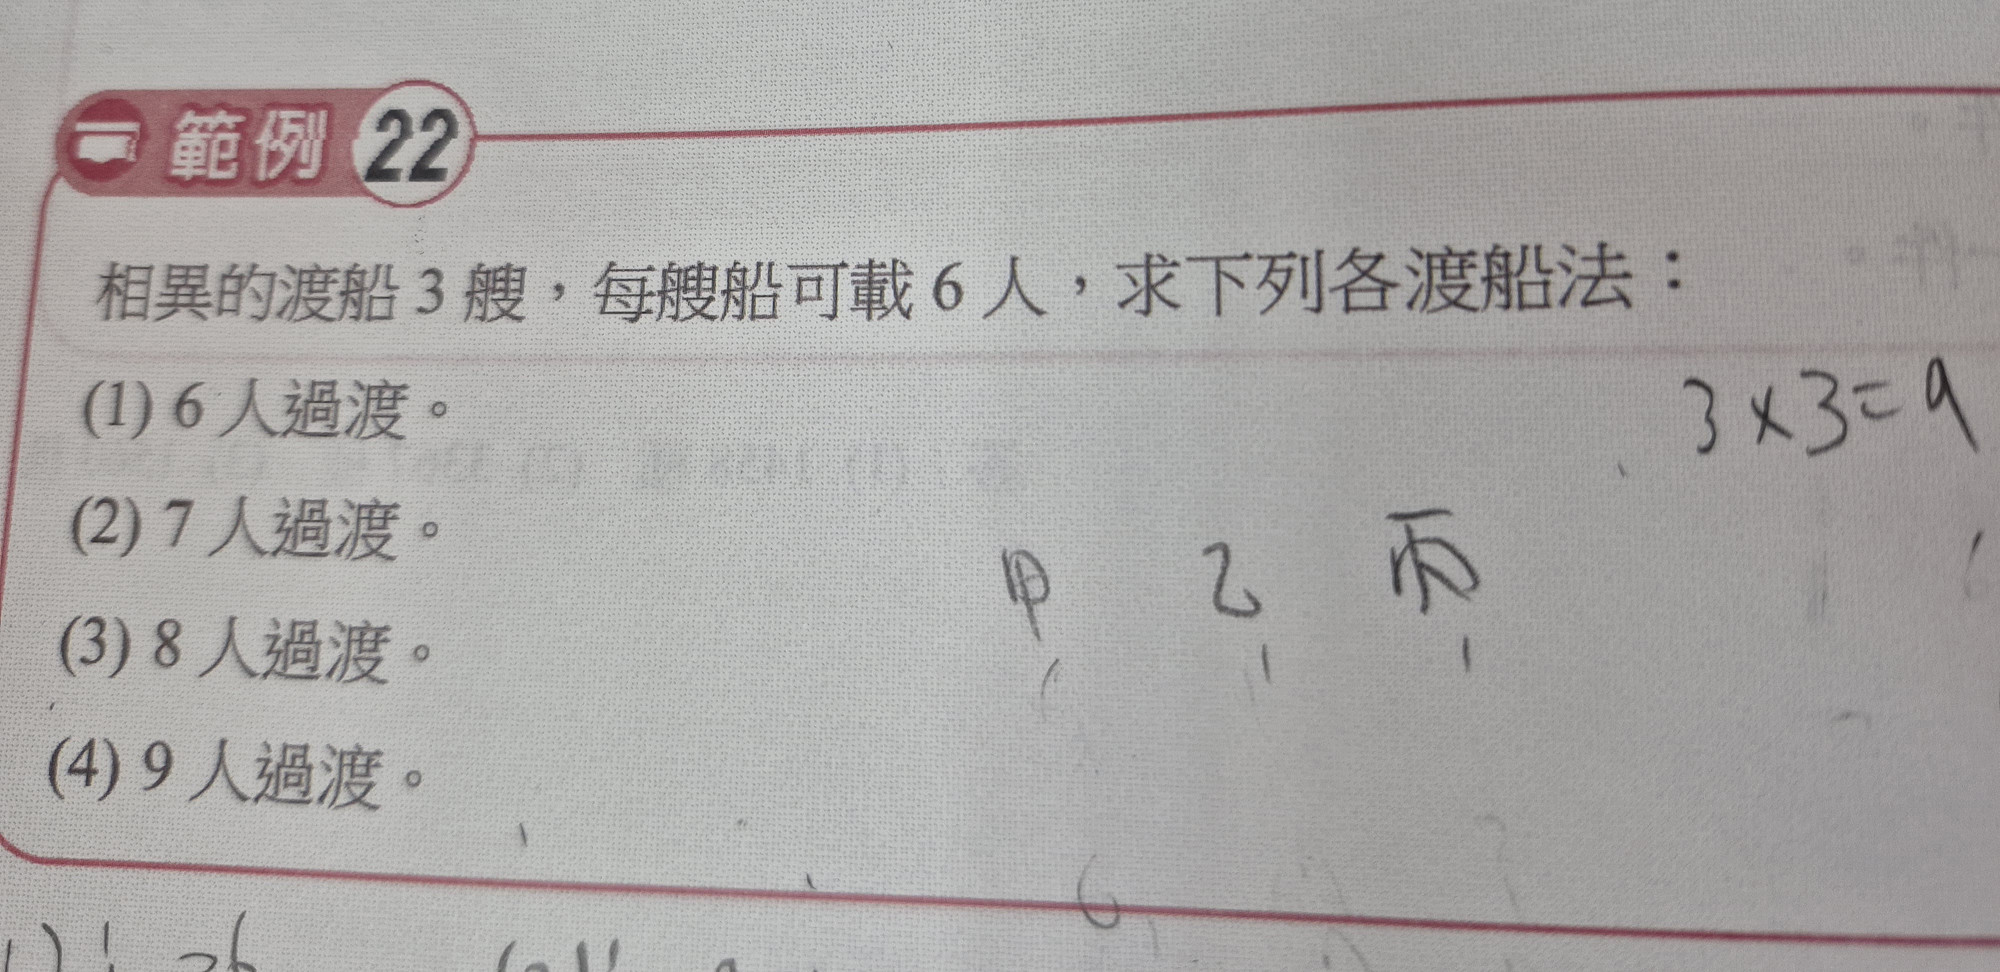 範例 22
相異的渡船 3 艘，每艘船可載 6 人，求下列各渡船法：
(1) 6 人過渡。
3×3=9
(2) 7 人過渡。
甲 乙 丙
(3) 8 人過渡。
(4) 9 人過渡。